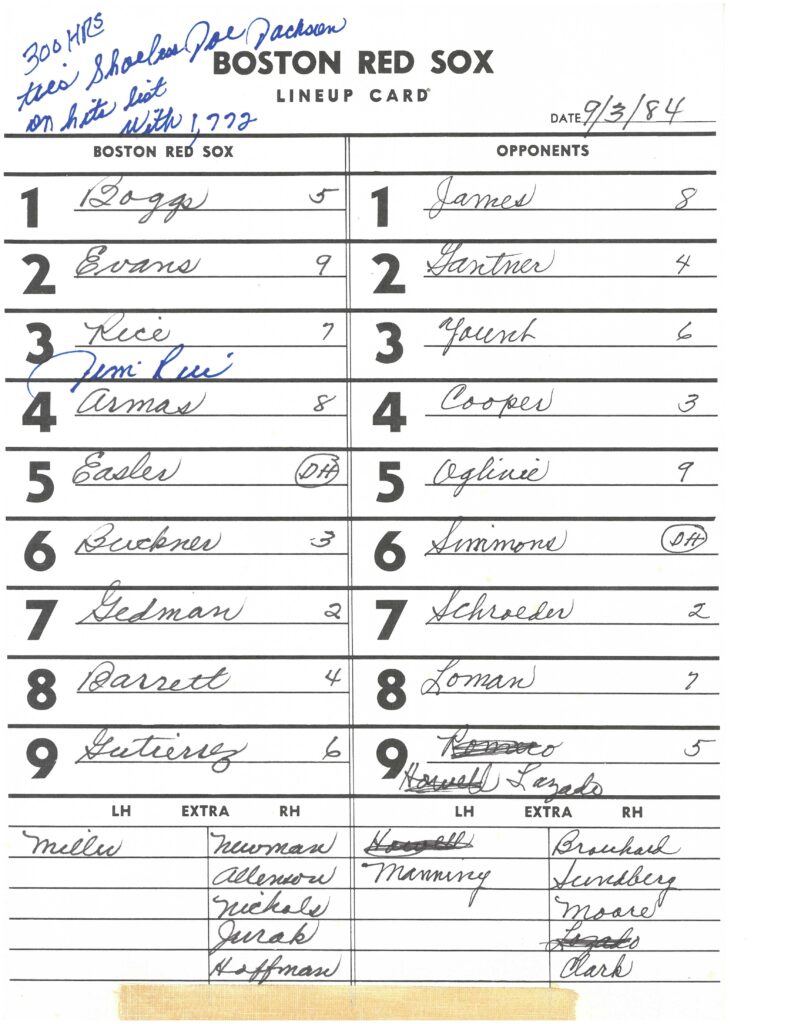 300 HRS
ties Shoeless Joe Jackson
on hits list
with 1,772
BOSTON RED SOX
LINEUP CARD
DATE 9/3/84
BOSTON RED SOX OPPONENTS
1 Boggs 5 1 James 8
2 Evans 9 2 Gantner 4
3 Rice 7 3 Yount 6
Jim Rice
4 Armas 8 4 Cooper 3
5 Easler DH 5 Oglivie 9
6 Buckner 3 6 Simmons DH
7 Gedman 2 7 Schroeder 2
8 Barrett 4 8 Loman 7
9 Gutierrez 6 9 Romero 5
Howell Lozado
LH EXTRA RH LH EXTRA RH
Miller Newman Howell Brouhard
Allenson Manning Sundberg
Nichols Moore
Jurak Lozado
Hoffman Clark